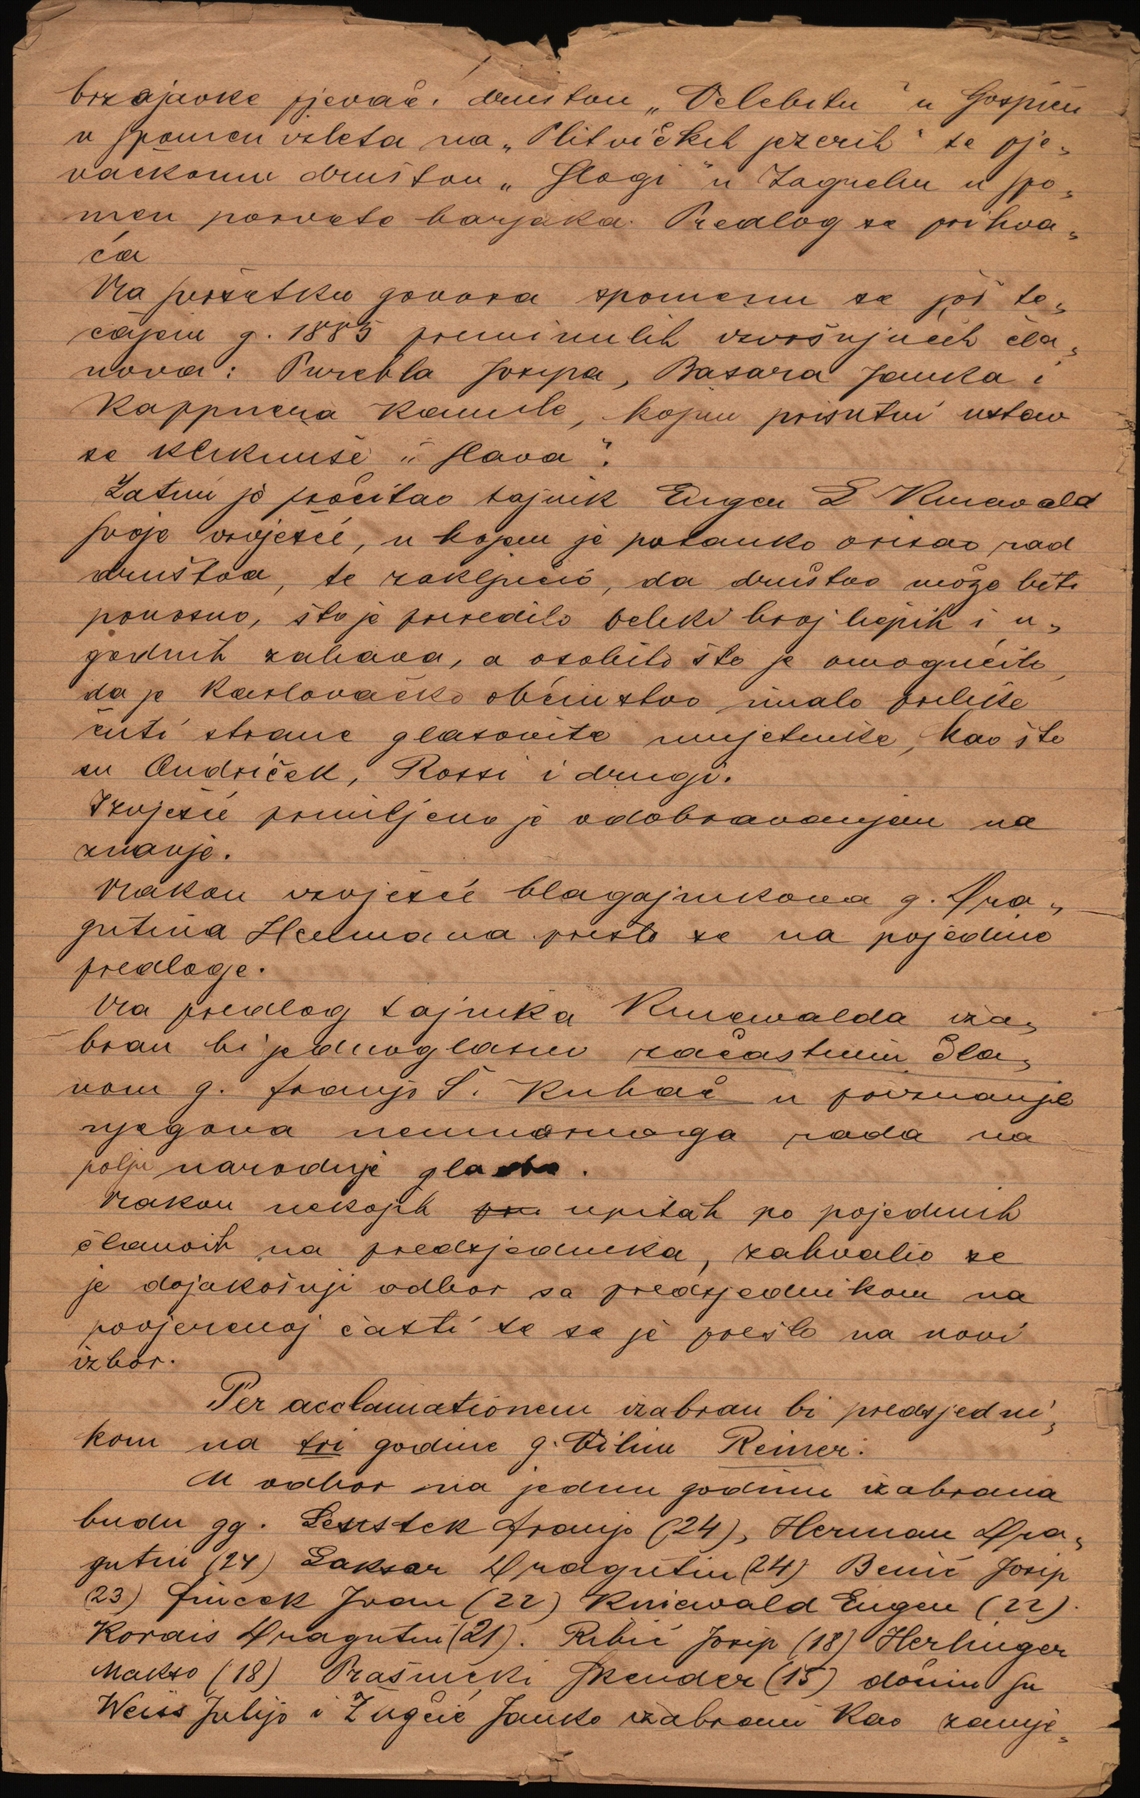 brzojavke pjevač. društvu „Velebitu“ u Gospiću
u spomen izleta na „Plitvičkih jezerih“ te pje„
vačkomu društvu „Slogi“ u Zagrebu u spo„
men posvete barjaka. Predlog se prihva„
ća
Na svršetku govora spomenu se još te„
čajem g. 1885 preminulih izvršujućih čla„
nova: Purebla Josipa, Basara Janka i
Kappnera Kamila, kojim prisutni ustav
se kliknuše „Slava“.
Zatim je pročitao tajnik Eugen L Knewald
svoje izvješće, u kojem je potanko orisao rad
društva, te zaključio, da društvo može biti
ponosno, što je priredilo veliki broj liepih i u„
godnih zabava, a osobito što je omogućilo,
da je karlovačko obćinstvo imalo prilike
čuti strane glasovite umjetnike, kao što
su Ondriček, Rossi i drugi.
Izvješće primljeno je odobravanjem na
znanje.
Nakon izvješća blagajnikova g. Dra„
gutina Hermana prešlo se na pojedine
predloge.
Na predlog tajnika Knewalda iza„
bran bi jednoglasno začastnim čla„
nom g. Franjo Š. Kuhač u priznanje
njegova neumornoga rada na
polju narodnje glasbe.
Nakon nekojih upitah po pojedinih
članovih na predsjednika, zahvalio se
je dojakošnji odbor sa predsjednikom na
povjerenoj časti te se je prešlo na novi
izbor.
Per acclamationem izabran bi predsjedni„
kom na tri godine g. Vilim Reiner.
U odbor na jednu godinu izabrana
budu gg. Franjo (24), Herman Dra„
gutin (24) Laksar Dragutin (24) Benić Josip
(23) Fincek Ivan (22) Kniewald Eugen (22).
Korais Dragutin (21). Ribić Josip (18) Herlinger
Makso (18) Prašnički Skender (15) dočim su
Weiss Julijo i Žugčić Janko izabrani kao zamje„